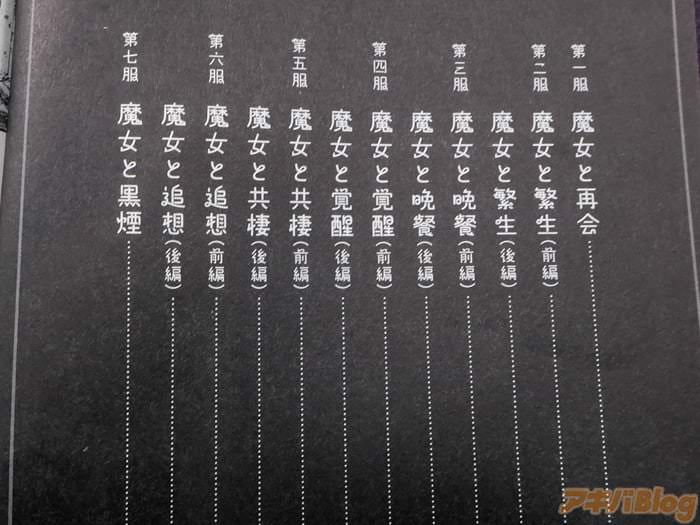 第一服 魔女と再会
第二服 魔女と繁生(前編)
魔女と繁生(後編)
第三服 魔女と晩餐(前編)
魔女と晩餐(後編)
第四服 魔女と覚醒(前編)
魔女と覚醒(後編)
第五服 魔女と共棲(前編)
魔女と共棲(後編)
第六服 魔女と追想(前編)
魔女と追想(後編)
第七服 魔女と黒煙
アキバBlog